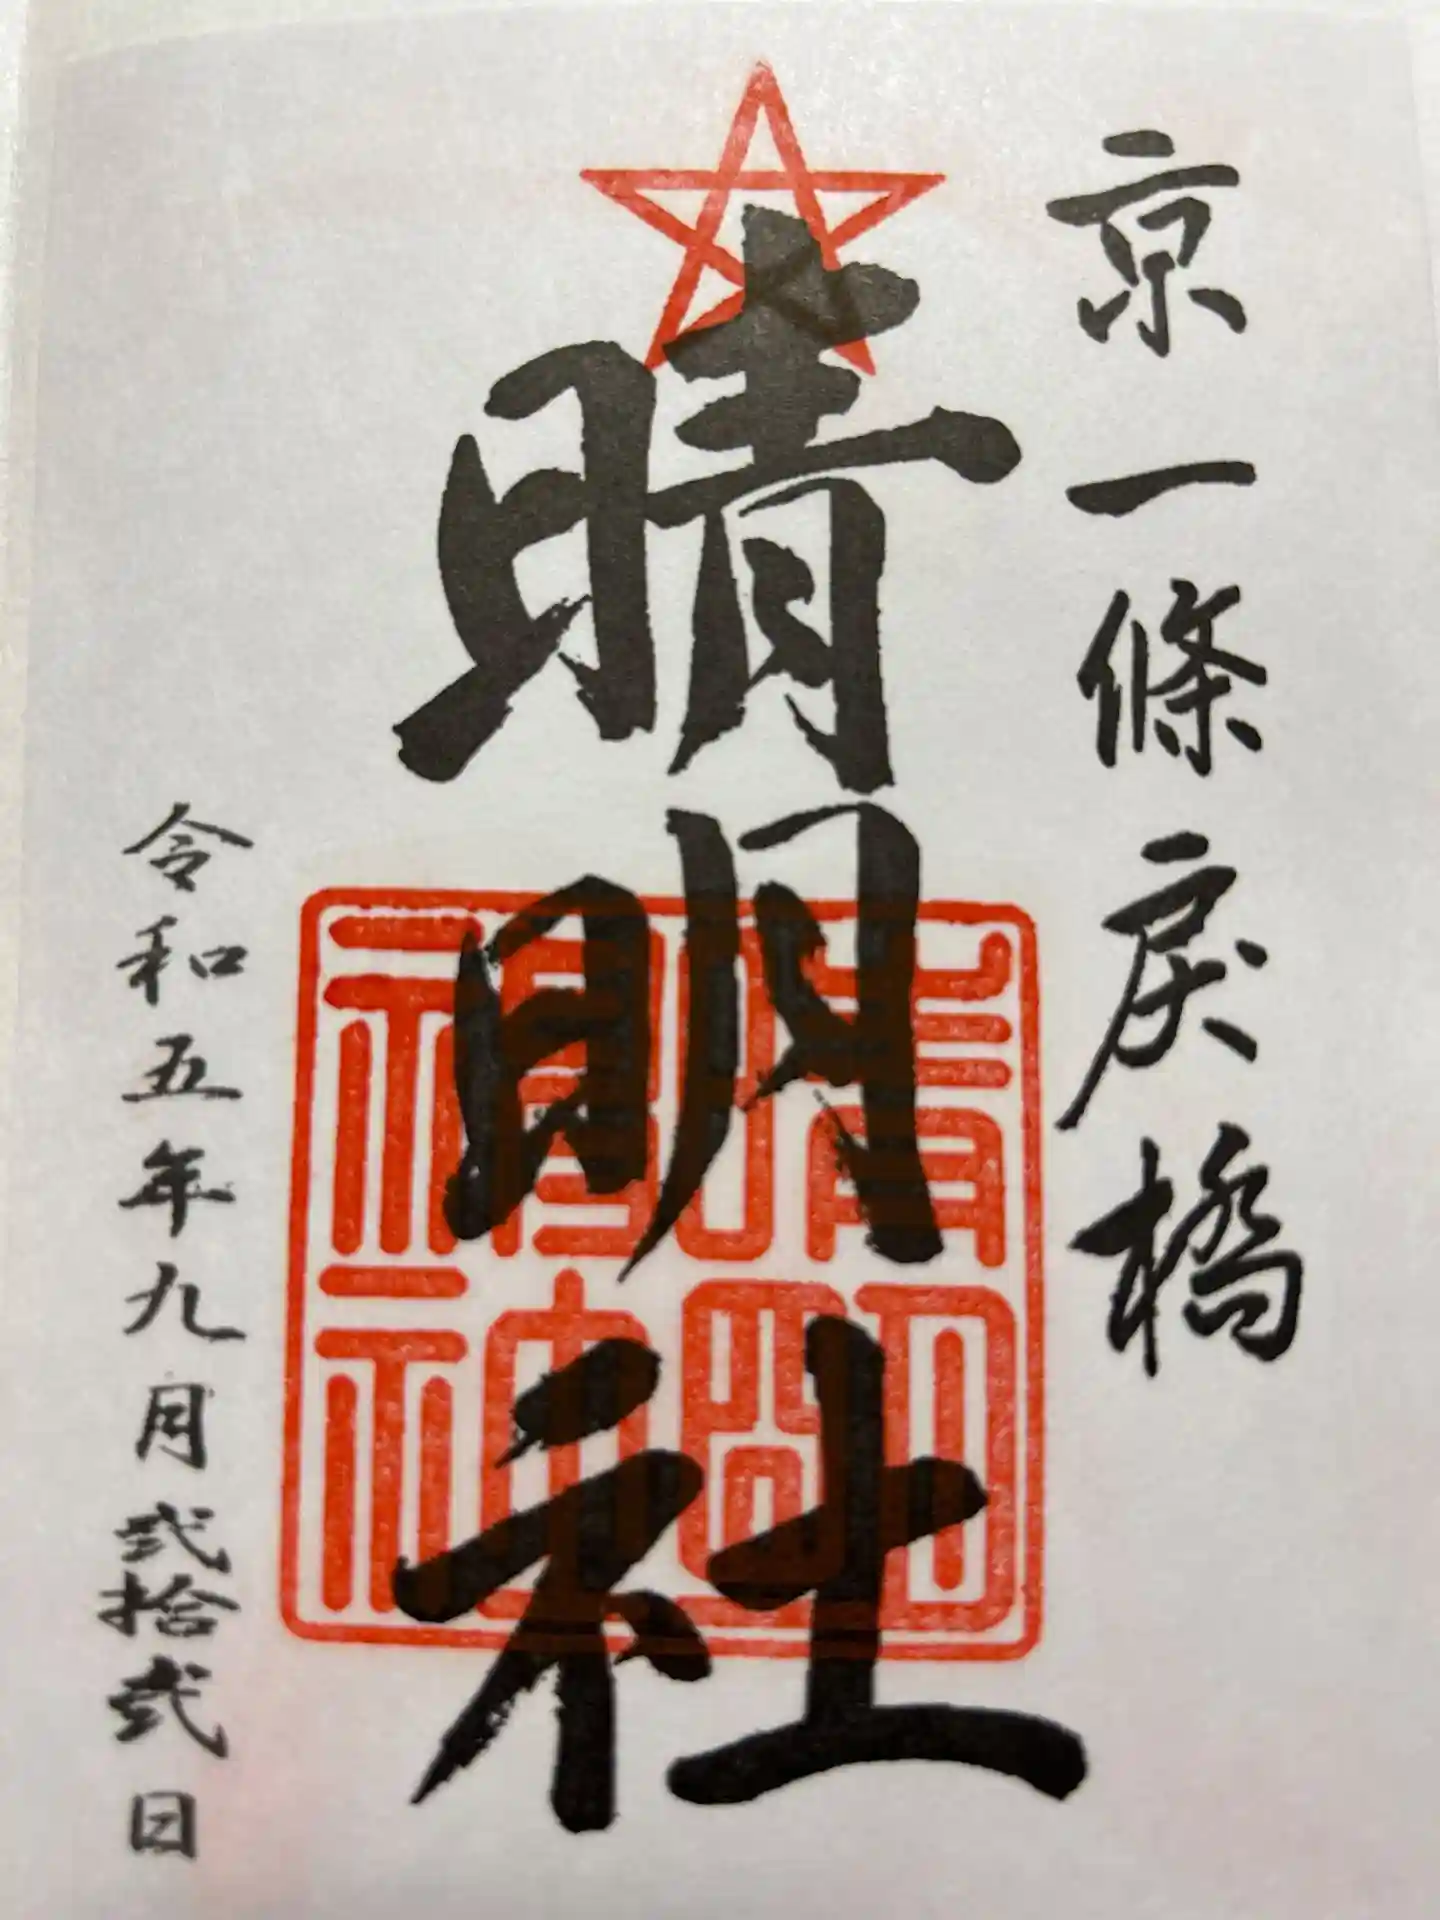 京一條戻橋
晴明社
晴明
神社
令和五年九月弐拾弐日